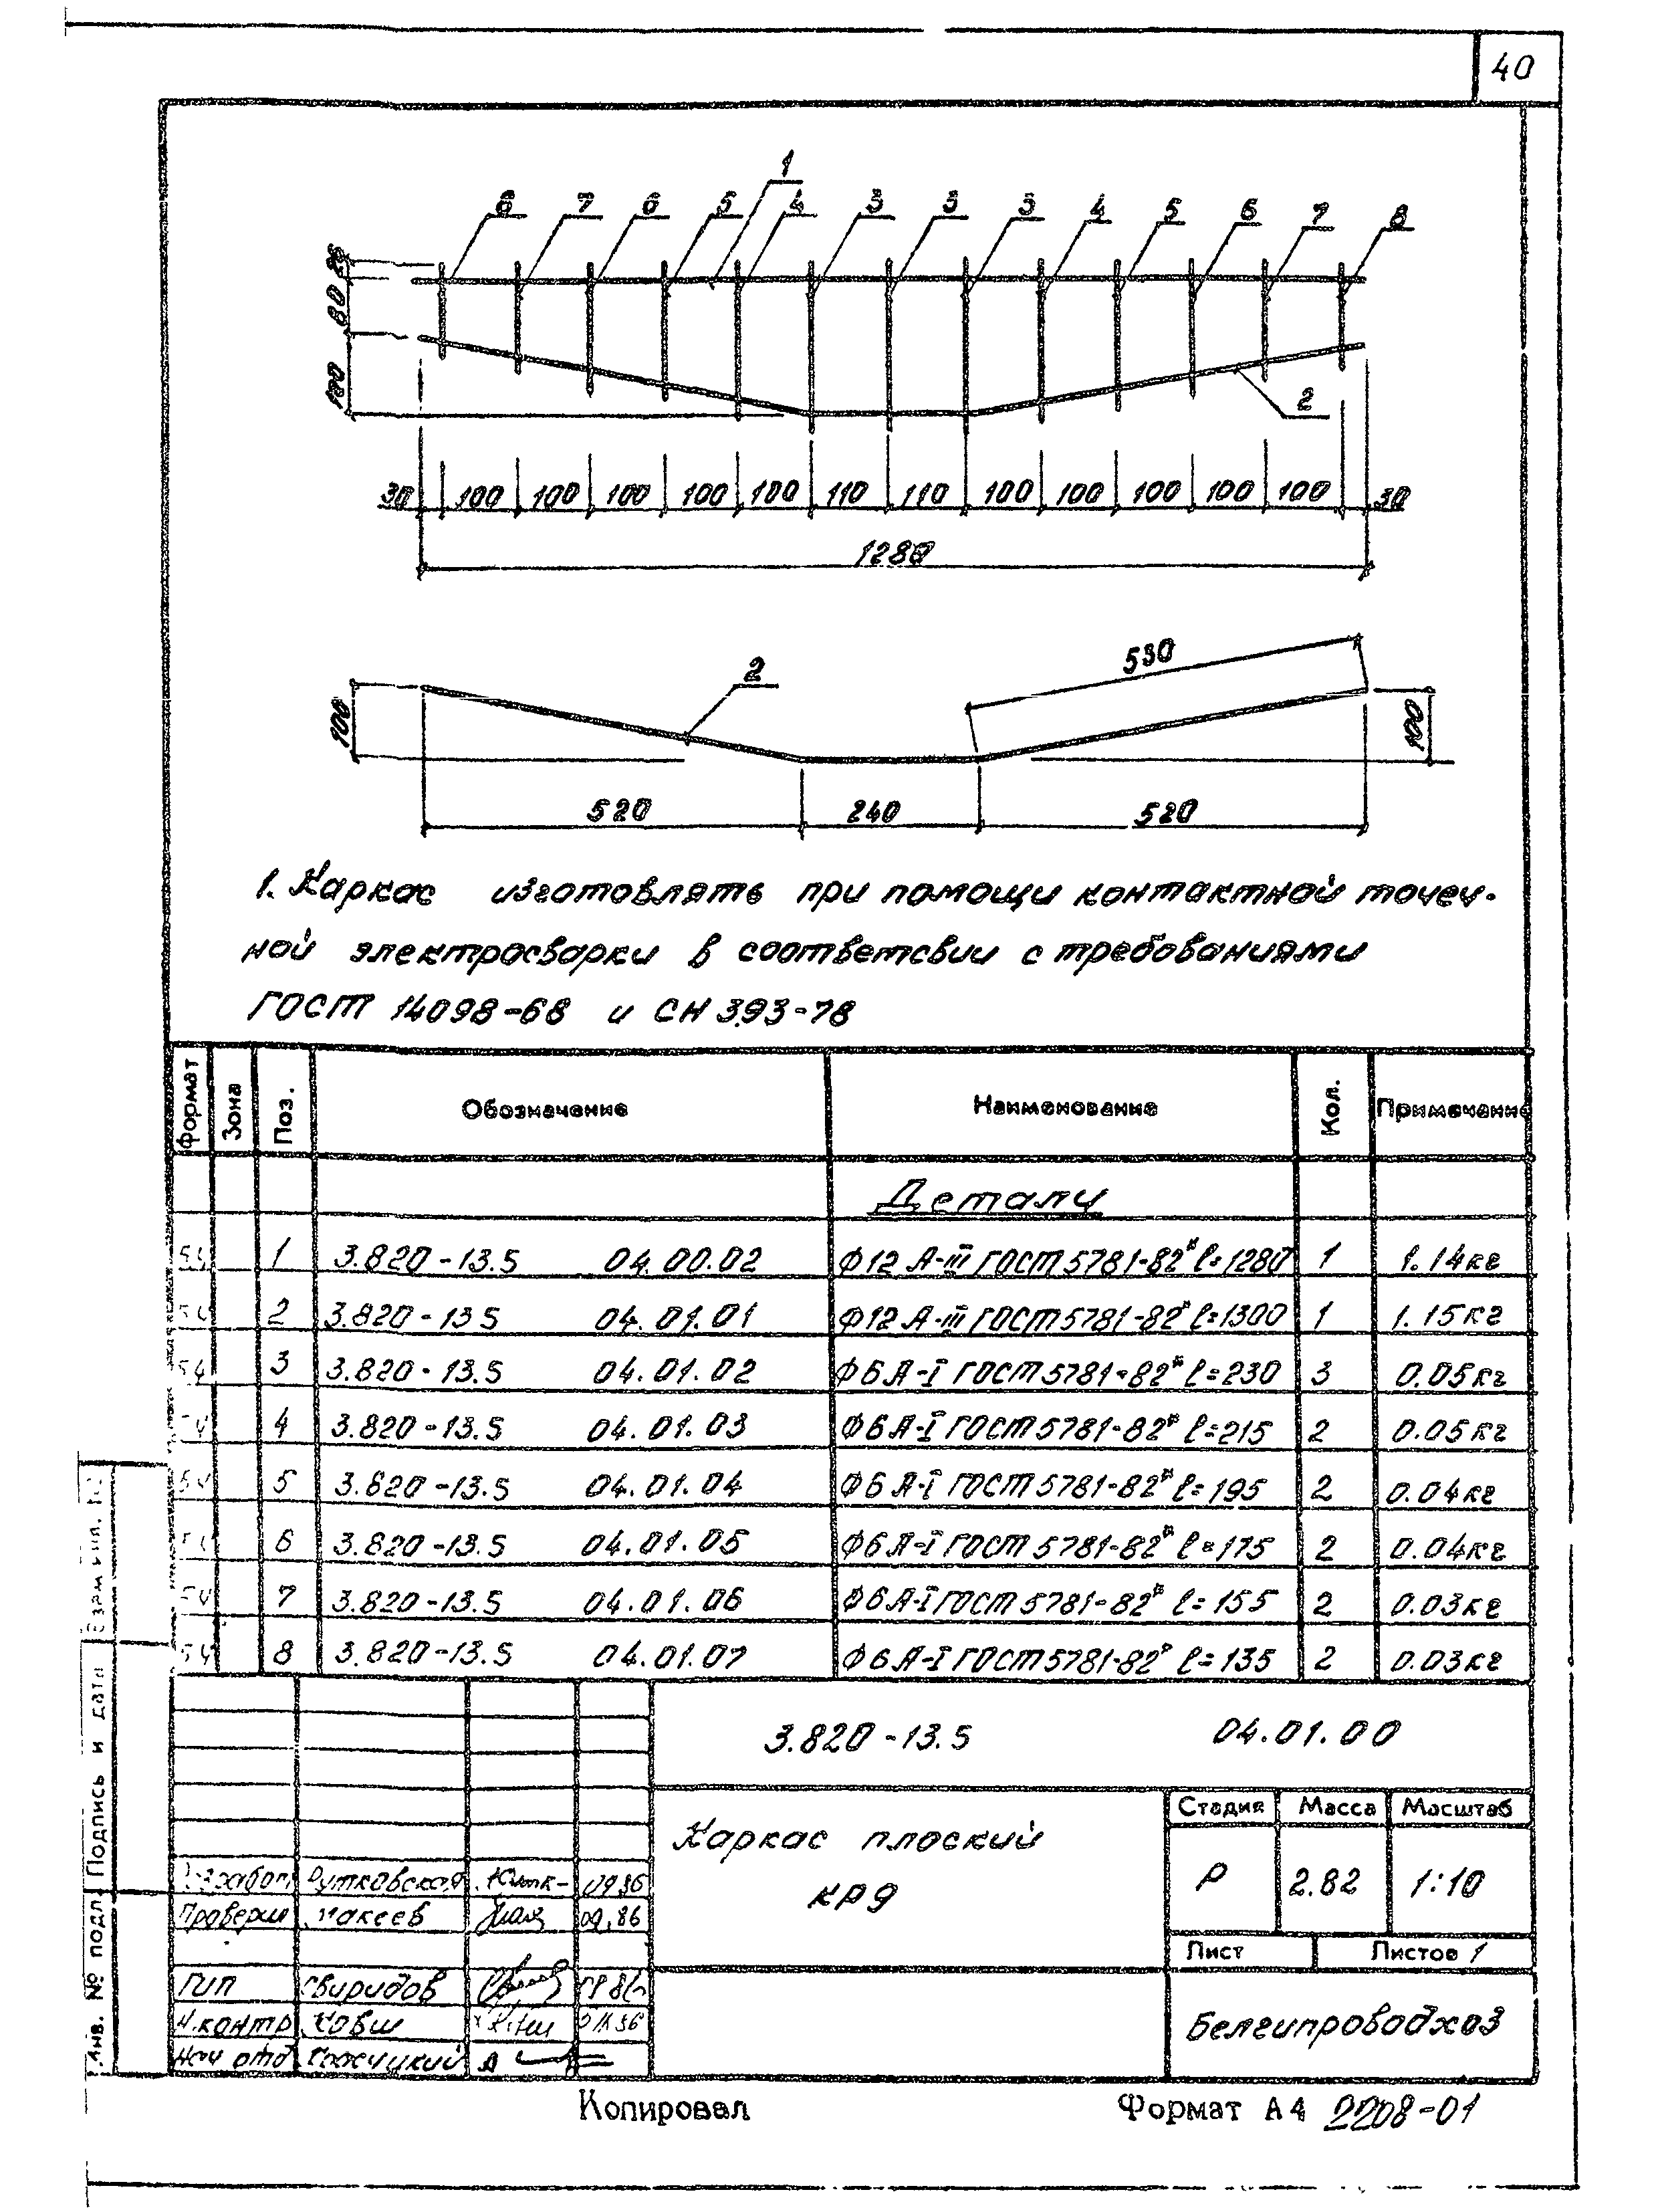 40
1
8 7 6 5 4 3 3 3 4 5 6 7 8
25
80
100
2
30 100 100 100 100 100 110 110 100 100 100 100 100 30
1280
530
2
100
100
520 240 520
1. Каркас изготовлять при помощи контактной точеч-
ной электросварки в соответсвии с требованиями
ГОСТ 14098-68 и СН 393-78
Формат Зона Поз. Обозначение Наименование Кол. Примечание
Детали
БЧ 1 3.820-13.5 04.00.02 Ф12 А-III ГОСТ 5781-82* ℓ=1280 1 1.14кг
БЧ 2 3.820-13.5 04.01.01 Ф12 А-III ГОСТ 5781-82* ℓ=1300 1 1.15кг
БЧ 3 3.820-13.5 04.01.02 Ф6 А-I ГОСТ 5781-82* ℓ=230 3 0.05кг
БЧ 4 3.820-13.5 04.01.03 Ф6 А-I ГОСТ 5781-82* ℓ=215 2 0.05кг
БЧ 5 3.820-13.5 04.01.04 Ф6 А-I ГОСТ 5781-82* ℓ=195 2 0.04кг
БЧ 6 3.820-13.5 04.01.05 Ф6 А-I ГОСТ 5781-82* ℓ=175 2 0.04кг
БЧ 7 3.820-13.5 04.01.06 Ф6 А-I ГОСТ 5781-82* ℓ=155 2 0.03кг
БЧ 8 3.820-13.5 04.01.07 Ф6 А-I ГОСТ 5781-82* ℓ=135 2 0.03кг
3.820-13.5 04.01.00
Каркас плоский
КР9
Стадия Масса Масштаб
Р 2.82 1:10
Лист Листов 1
Белгипроводхоз
Разработ. Рутковская 09.86
Проверил Макеев 09.86
ГИП Свиридов
Н.контр Ковш
Нач отд
Взам инв. №
Подпись и дата
Инв. № подл.
Копировал Формат А4 2208-01